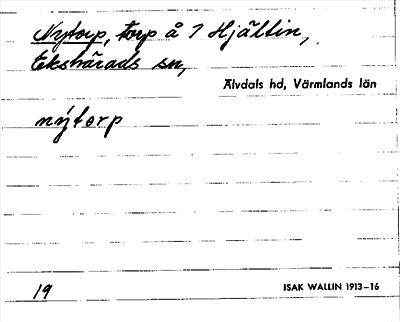 Nytorp, torp å 7 Hjällin,
Ekshärads sn,
Älvdals hd, Värmlands län
nýtorp
19
ISAK WALLIN 1913–16